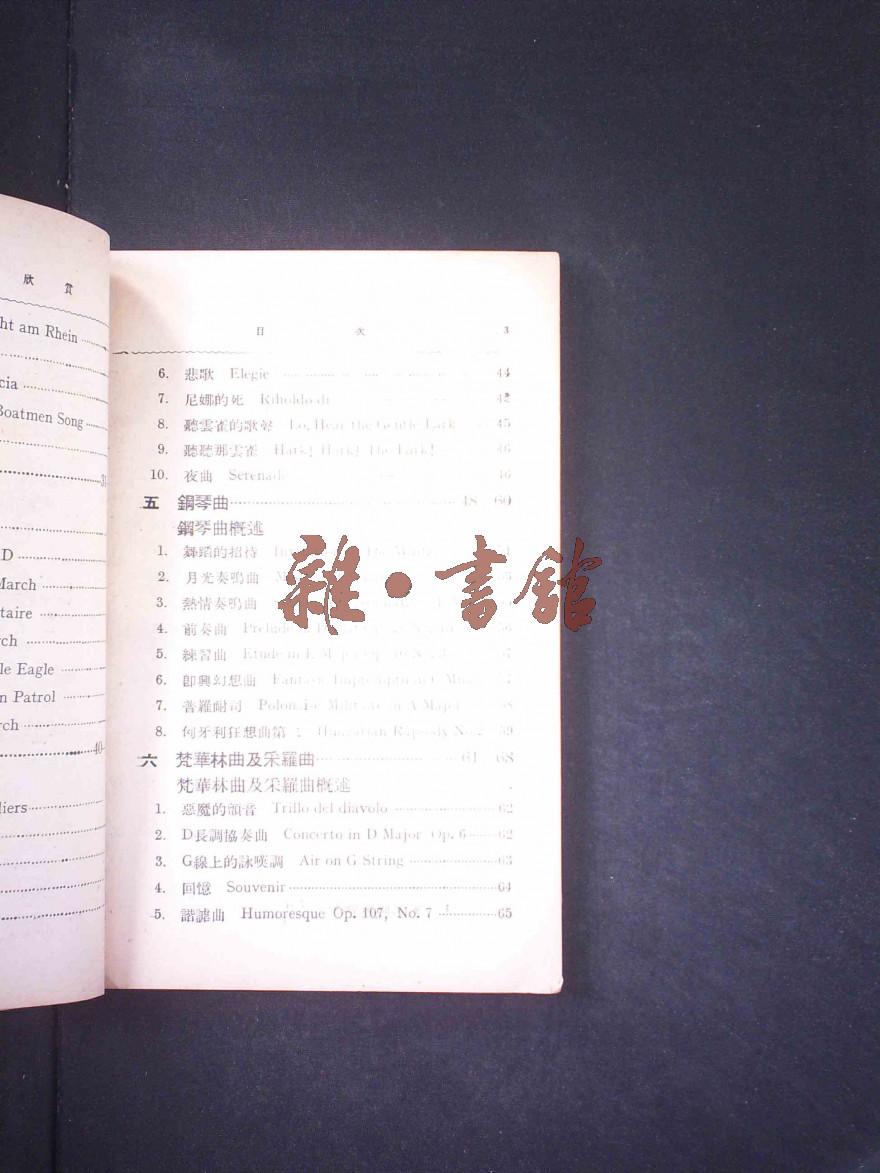 欣 賞
ht am Rhein
cia
Boatmen Song
D
March
taire
rch
le Eagle
n Patrol
rch
40
liers
目 次 3
6. 悲歌 Elegie 44
7. 尼娜的死
8. 聽雲雀的歌聲 Lo, Hear the Gentle Lark 45
9. 聽聽那雲雀 Hark! Hark! The Lark! 46
10. 夜曲 Serenade 46
五 鋼琴曲 48 60
鋼琴曲概述
1. 舞蹈的招待
2. 月光奏鳴曲
3. 熱情奏鳴曲
4. 前奏曲 Prelude
5. 練習曲 Etude in E Major Op. 57
6. 卽興幻想曲 Fantasie Impromptu in C 57
7. 普羅耐司 Polonaise Militaire in A Major 58
8. 匈牙利狂想曲第 Hungarian Rapsody No. 2 59
六 梵華林曲及采羅曲 61 68
梵華林曲及采羅曲概述
1. 惡魔的顫音 Trillo del diavolo 62
2. D長調協奏曲 Concerto in D Major Op. 6 62
3. G線上的詠嘆調 Air on G String 63
4. 回憶 Souvenir 64
5. 諧謔曲 Humoresque Op. 107, No. 7 65
雜•書館